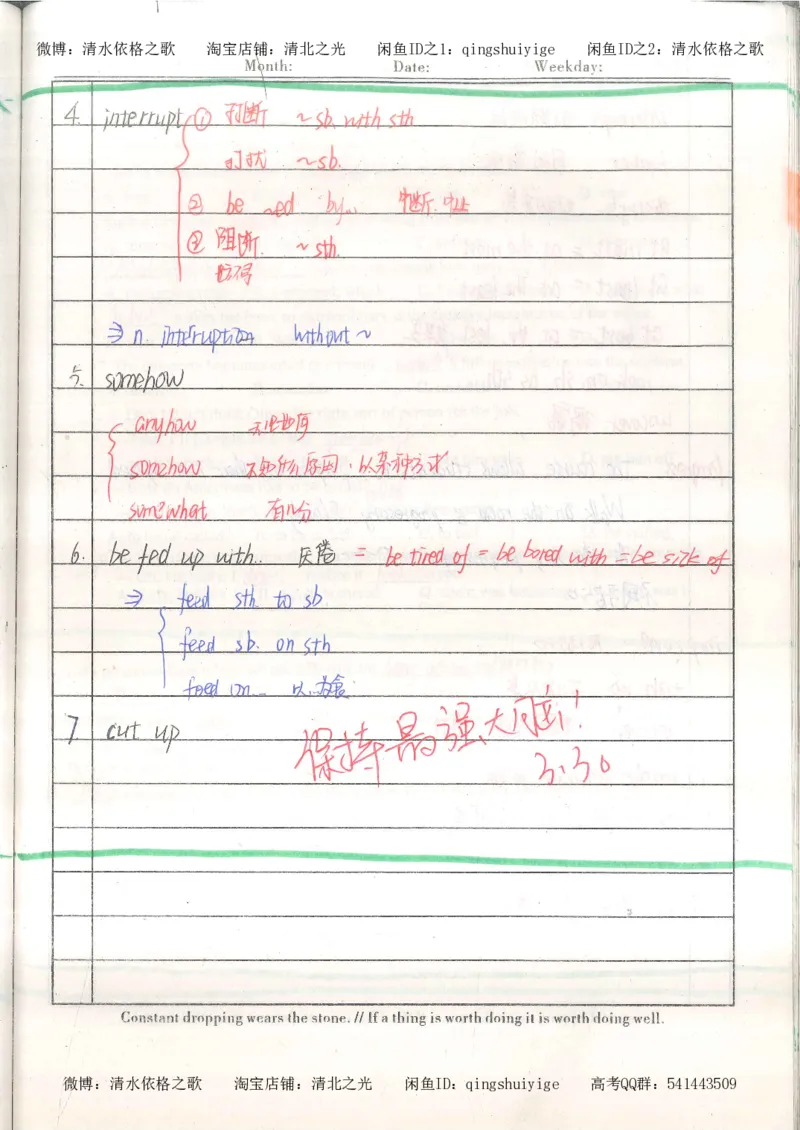 微博: 清水依格之歌 淘宝店铺: 清北之光 闲鱼ID之1: qingshuiyige 闲鱼ID之2: 清水依格之歌
Month: Date: Weekday:
4. interrupt ① 打断 ~sb. with sth
打扰 ~sb.
② be ~ed by... 中断.中止
③ 阻断. ~sth.
妨碍
⇒ n. interruption without ~
5. somehow
anyhow 无论如何
somehow 不知什么原因.以某种方式
somewhat 有几分
6. be fed up with.. 厌倦 = be tired of = be bored with = be sick of
⇒ feed sth. to sb
feed sb. on sth
feed on... 以..为食
7 cut up
保持最强大
3.30
Constant dropping wears the stone. // If a thing is worth doing it is worth doing well.
微博: 清水依格之歌 淘宝店铺: 清北之光 闲鱼ID: qingshuiyige 高考QQ群: 541443509